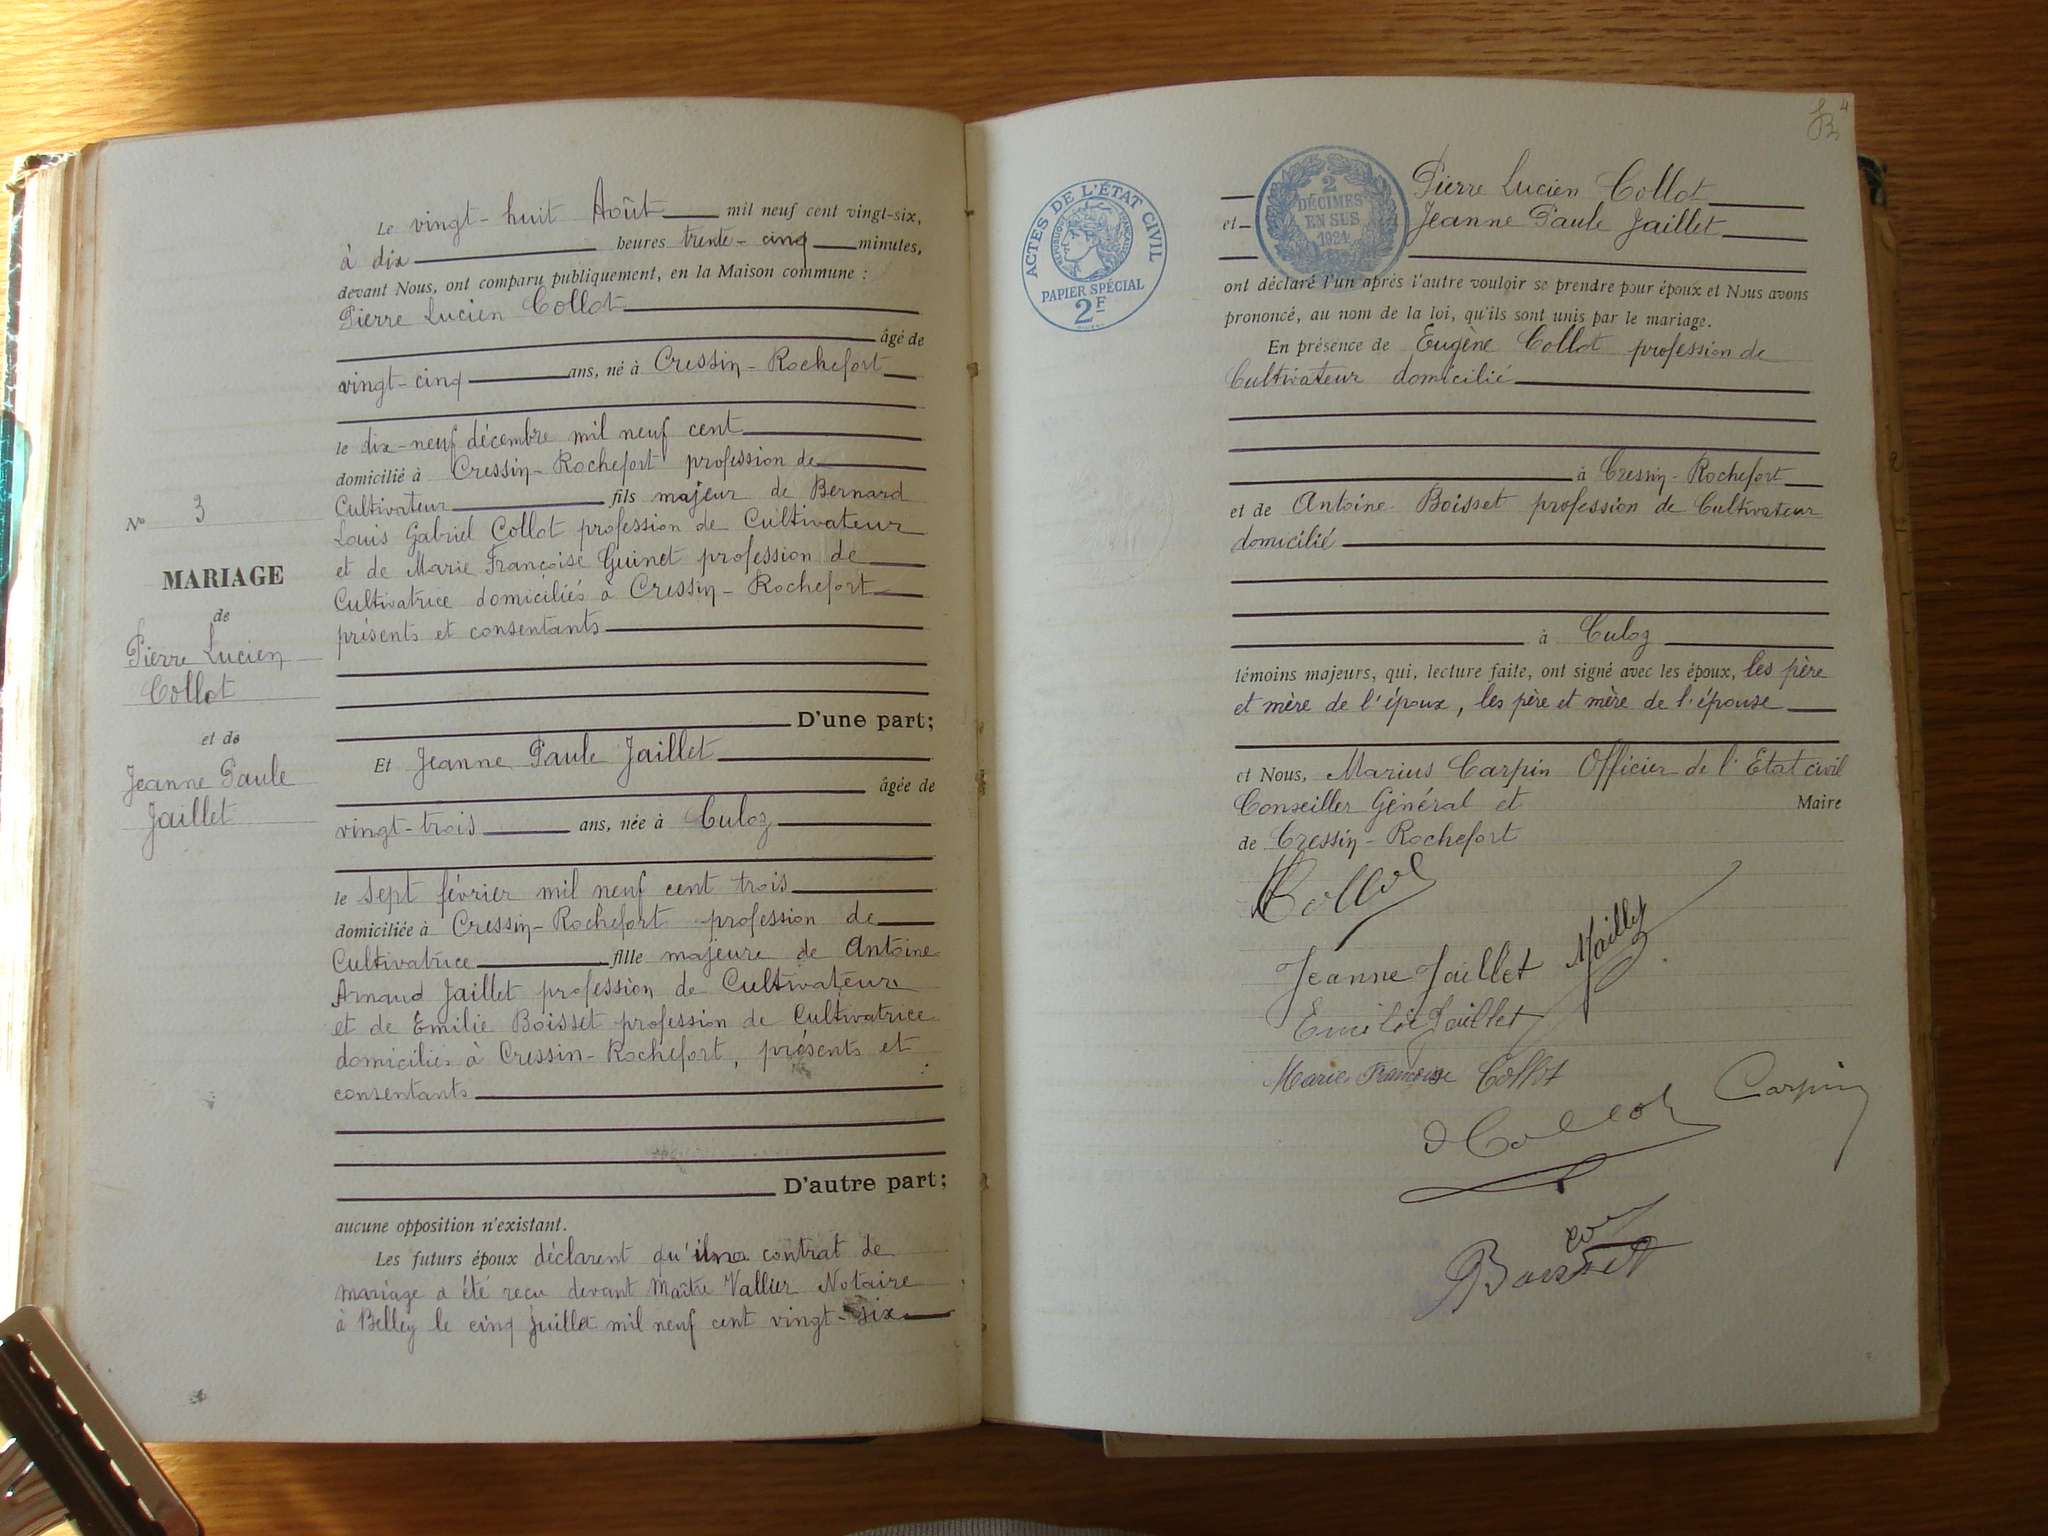 Le vingt-huit Août mil neuf cent vingt-six,
à dix heures trente-cinq minutes,
devant Nous, ont comparu publiquement, en la Maison commune :
Pierre Lucien Collot
âgé de
vingt-cinq ans, né à Cressin-Rochefort
le dix-neuf décembre mil neuf cent
domicilié à Cressin-Rochefort profession de
Cultivateur fils majeur de Bernard
Louis Gabriel Collot profession de Cultivateur
et de Marie Françoise Guinet profession de
Cultivatrice domiciliés à Cressin-Rochefort
présents et consentants
D'une part;
Et Jeanne Paule Jaillet
âgée de
vingt-trois ans, née à Culoz
le sept février mil neuf cent trois
domiciliée à Cressin-Rochefort profession de
Cultivatrice fille majeure de Antoine
Arnaud Jaillet profession de Cultivateur
et de Emilie Boisset profession de Cultivatrice
domiciliés à Cressin-Rochefort, présents et
consentants
D'autre part;
aucune opposition n'existant.
Les futurs époux déclarent qu' contrat de
mariage a été reçu devant Maître Vallier Notaire
à Belley le cinq Juillet mil neuf cent vingt-six
No 3
MARIAGE
de
Pierre Lucien
Collot
et de
Jeanne Paule
Jaillet
4
ACTES DE L'ÉTAT CIVIL
RÉPUBLIQUE FRANÇAISE
PAPIER SPÉCIAL
2F
2
DÉCIMES
EN SUS
1924
Pierre Lucien Collot
et Jeanne Paule Jaillet
ont déclaré l'un après l'autre vouloir se prendre pour époux et Nous avons
prononcé, au nom de la loi, qu'ils sont unis par le mariage.
En présence de Eugène Collot profession de
Cultivateur domicilié
à Cressin-Rochefort
et de Antoine Boisset profession de Cultivateur
domicilié
à Culoz
témoins majeurs, qui, lecture faite, ont signé avec les époux, les père
et mère de l'époux, les père et mère de l'épouse
et Nous, Marius Carpin Officier de l'Etat civil
Conseiller Général et Maire
de Cressin-Rochefort
Collot
Jeanne Jaillet
Jaillet
Emilie Jaillet
Marie Françoise Collot
Collot
Carpin
Boisset